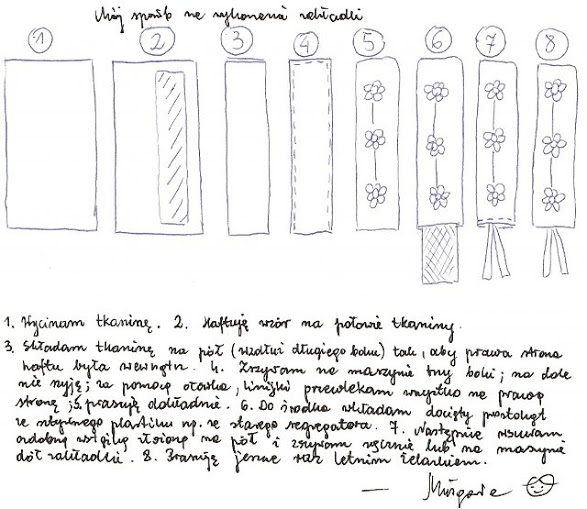 Mój sposób na wykonania zakładki
1 2 3 4 5 6 7 8
1. Wycinam tkaninę. 2. Haftuję wzór na połowie tkaniny.
3. Składam tkaninę na pół (wzdłuż długiego boku) tak, aby prawa strona
haftu była wewnątrz. 4. Zszywam na maszynie trzy boki; na dole
nie szyję; za pomocą ołówka, linijki przewlekam wszystko na prawą
stronę; 5. prasuję dokładnie. 6. Do środka wkładam docięty prostokąt
ze sztywnego plastiku np. ze starego segregatora. 7. Następnie wsuwam
ozdobną wstążkę złożoną na pół i zszywam ręcznie lub na maszynie
dół zakładki. 8. Prasuję jeszcze raz letnim żelazkiem.